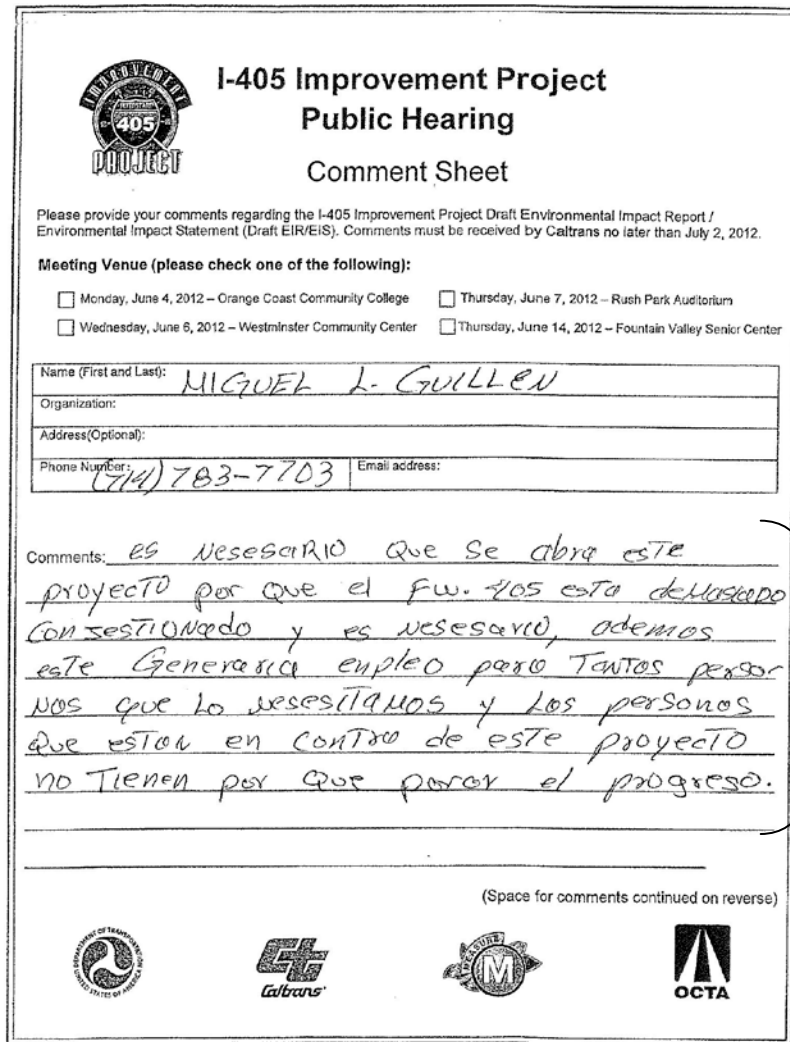 IMPROVEMENT
INTERSTATE
405
PROJECT
I-405 Improvement Project
Public Hearing
Comment Sheet
Please provide your comments regarding the I-405 Improvement Project Draft Environmental Impact Report /
Environmental Impact Statement (Draft EIR/EIS). Comments must be received by Caltrans no later than July 2, 2012.
Meeting Venue (please check one of the following):
Monday, June 4, 2012 – Orange Coast Community College
Thursday, June 7, 2012 – Rush Park Auditorium
Wednesday, June 6, 2012 – Westminster Community Center
Thursday, June 14, 2012 – Fountain Valley Senior Center
Name (First and Last): MIGUEL L. GUILLEN
Organization:
Address(Optional):
Phone Number: (714) 783-7703 Email address:
Comments: es NesesaRIO Que Se abra esTe
proyecTO por Que el FW. 405 esTa deMasiado
ConsesTIONado y es Nesesario, ademas
esTe Generaria enpleo para TanTas person
Nas que Lo NesesiTaMos y Las personas
Que esTan en ConTra de esTe proyecTO
no Tienen por Que parar el progreso.
(Space for comments continued on reverse)
DEPARTMENT OF TRANSPORTATION
UNITED STATES OF AMERICA
Caltrans
MEASURE
M
OCTA